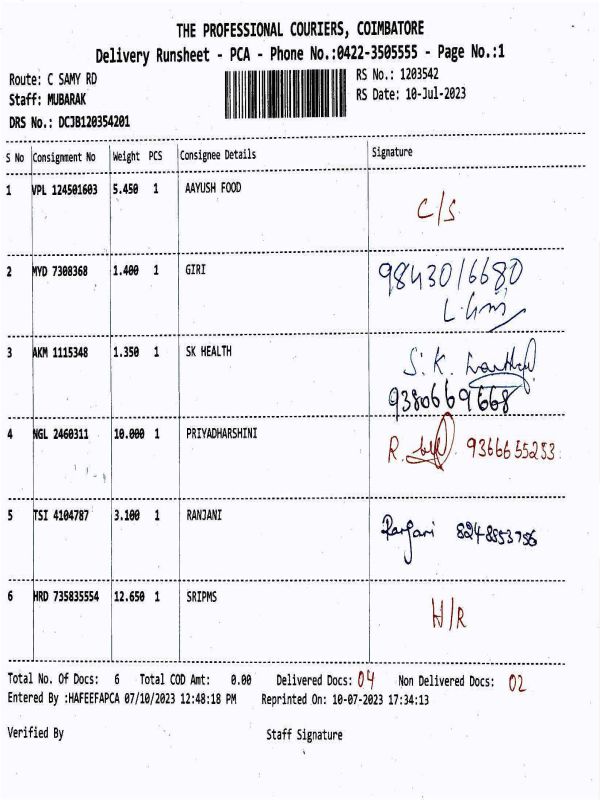 THE PROFESSIONAL COURIERS, COIMBATORE
Delivery Runsheet - PCA - Phone No.:0422-3505555 - Page No.:1
Route: C SAMY RD
RS No.: 1203542
Staff: MUBARAK
RS Date: 10-Jul-2023
DRS No.: DCJB120354201
S No Consignment No Weight PCS Consignee Details Signature
1 VPL 124501603 5.450 1 AAYUSH FOOD
C/S
2 MYD 7308368 1.400 1 GIRI 9843016680
3 AKM 1115348 1.350 1 SK HEALTH S.K.
9380669668
4 NGL 2460311 10.000 1 PRIYADHARSHINI
R. 9366655253
5 TSI 4104787 3.100 1 RANJANI
Ranjani 8248553756
6 HRD 735835554 12.650 1 SRIPMS
H/R
Total No. Of Docs: 6 Total COD Amt: 0.00 Delivered Docs: 04 Non Delivered Docs: 02
Entered By :HAFEEFAPCA 07/10/2023 12:48:18 PM Reprinted On: 10-07-2023 17:34:13
Verified By Staff Signature